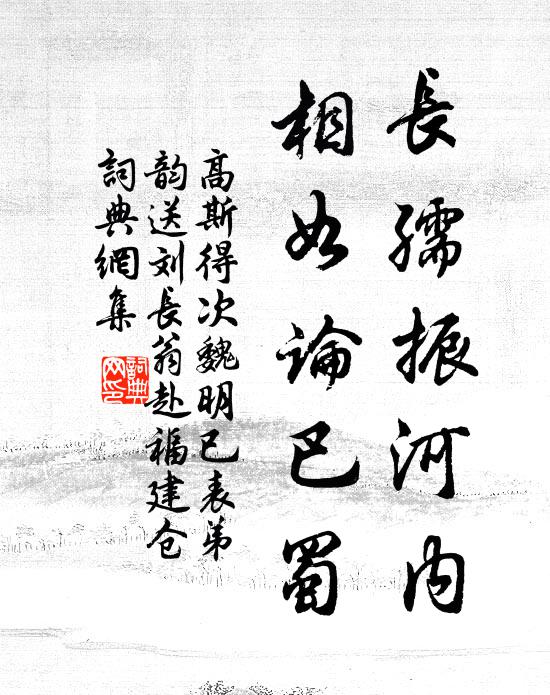 長孺振河内
相如論巴蜀
高斯得次魏明已表弟
韵送刘長翁赴福建仓
詞典網集
詞典網印